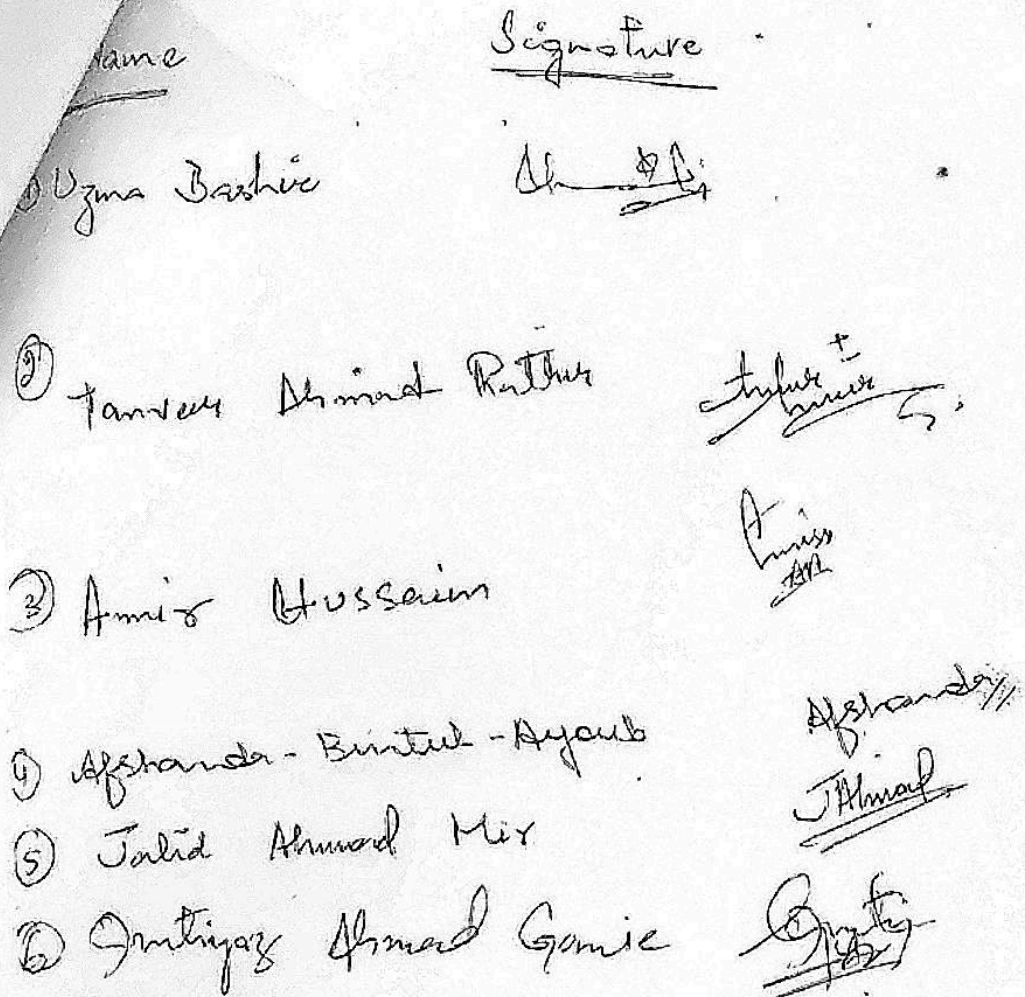 Name Signature
① Uzma Bashir
② Tanveer Ahmad Rather
③ Aamir Hussain
④ Afshanda - Bintul - Ayoub Afshanda
⑤ Javid Ahmad Mir JAhmad
⑥ Imtiyaz Ahmad Ganie